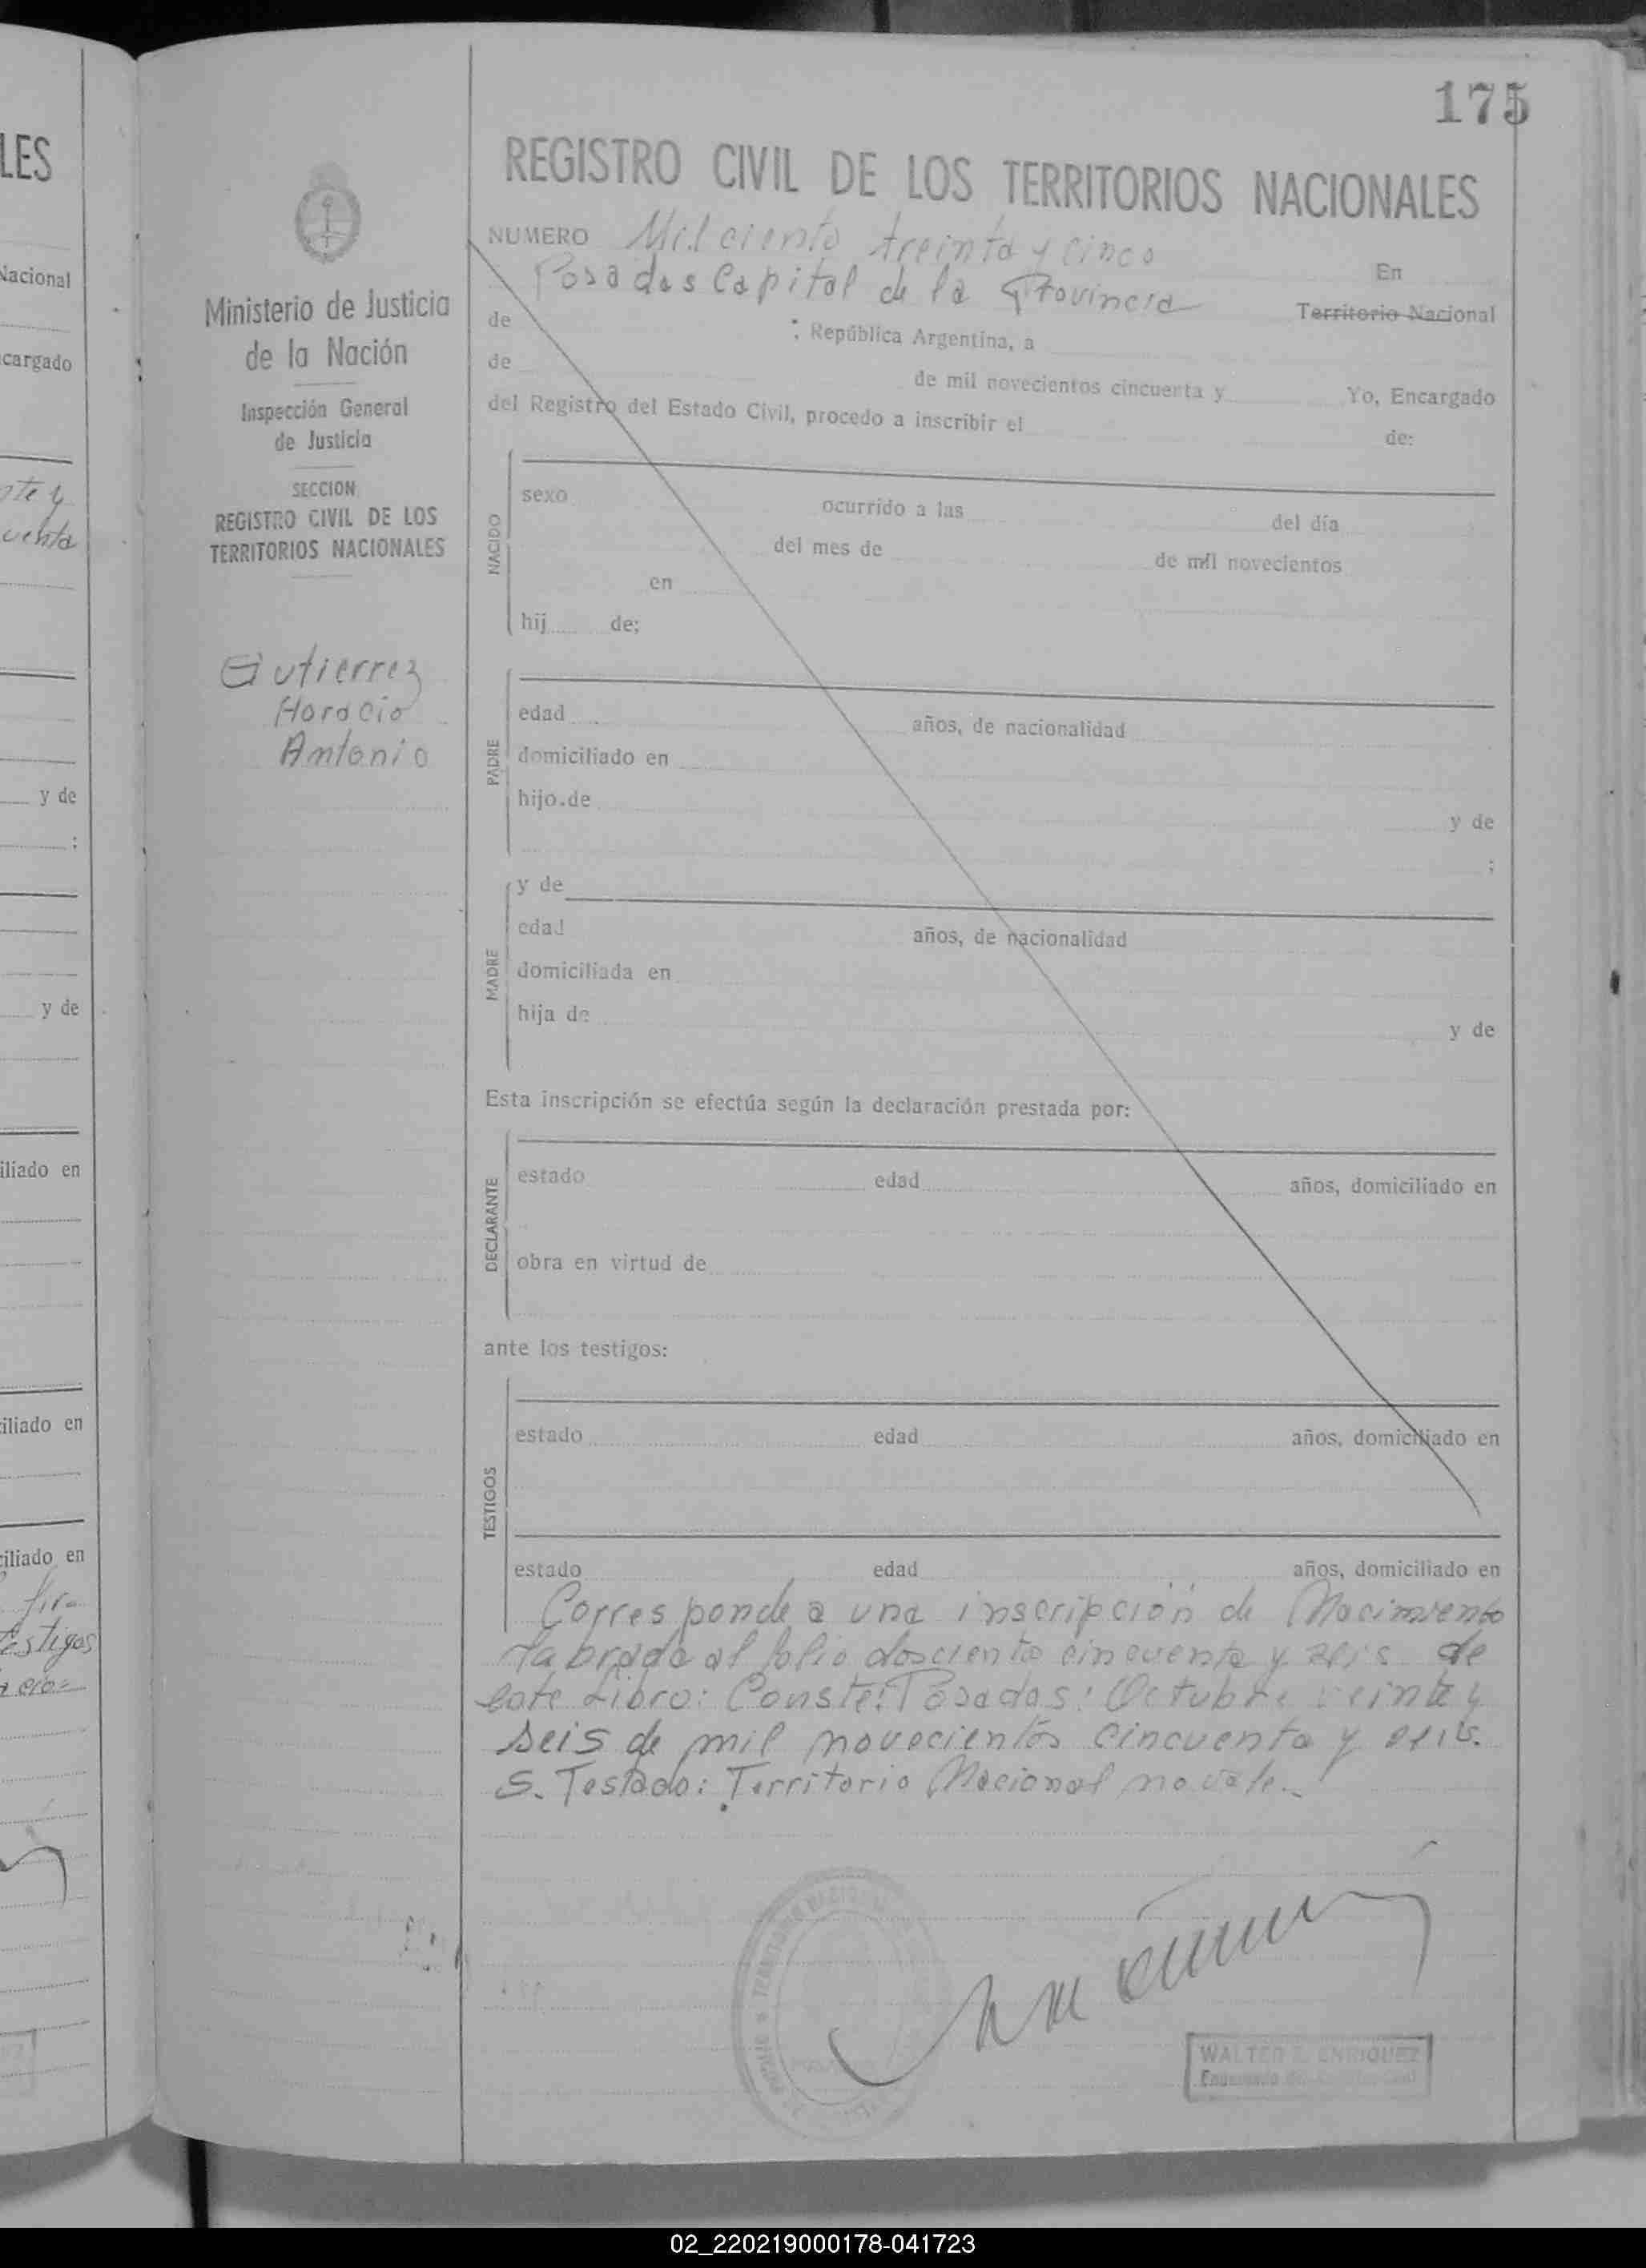 175
LES
Nacional
cargado
y de
:
y de
iliado en
iliado en
iliado en
testigos
Ministerio de Justicia
de la Nación
Inspección General
de Justicia
SECCION
REGISTRO CIVIL DE LOS
TERRITORIOS NACIONALES
Gutierrez
Horacio
Antonio
REGISTRO CIVIL DE LOS TERRITORIOS NACIONALES
NUMERO Mil ciento treinta y cinco En
Posadas Capital de la Provincia Territorio Nacional
de ; República Argentina, a
de de mil novecientos cincuenta y Yo, Encargado
del Registro del Estado Civil, procedo a inscribir el de:
NACIDO
sexo ocurrido a las del día
del mes de de mil novecientos
en
hij de;
PADRE
edad años, de nacionalidad
domiciliado en
hijo de y de
;
MADRE
y de
edad años, de nacionalidad
domiciliada en
hija de y de
Esta inscripción se efectúa según la declaración prestada por:
DECLARANTE
estado edad años, domiciliado en
obra en virtud de
ante los testigos:
TESTIGOS
estado edad años, domiciliado en
estado edad años, domiciliado en
Corresponde a una inscripción de Nacimiento
labrada al folio dosciento cincuenta y seis de
este Libro: Conste: Posadas: Octubre veinte y
seis de mil novecientos cincuenta y seis.
S. Testado: Territorio Nacional no vale.
WALTER ENRIQUEZ
02_220219000178-041723